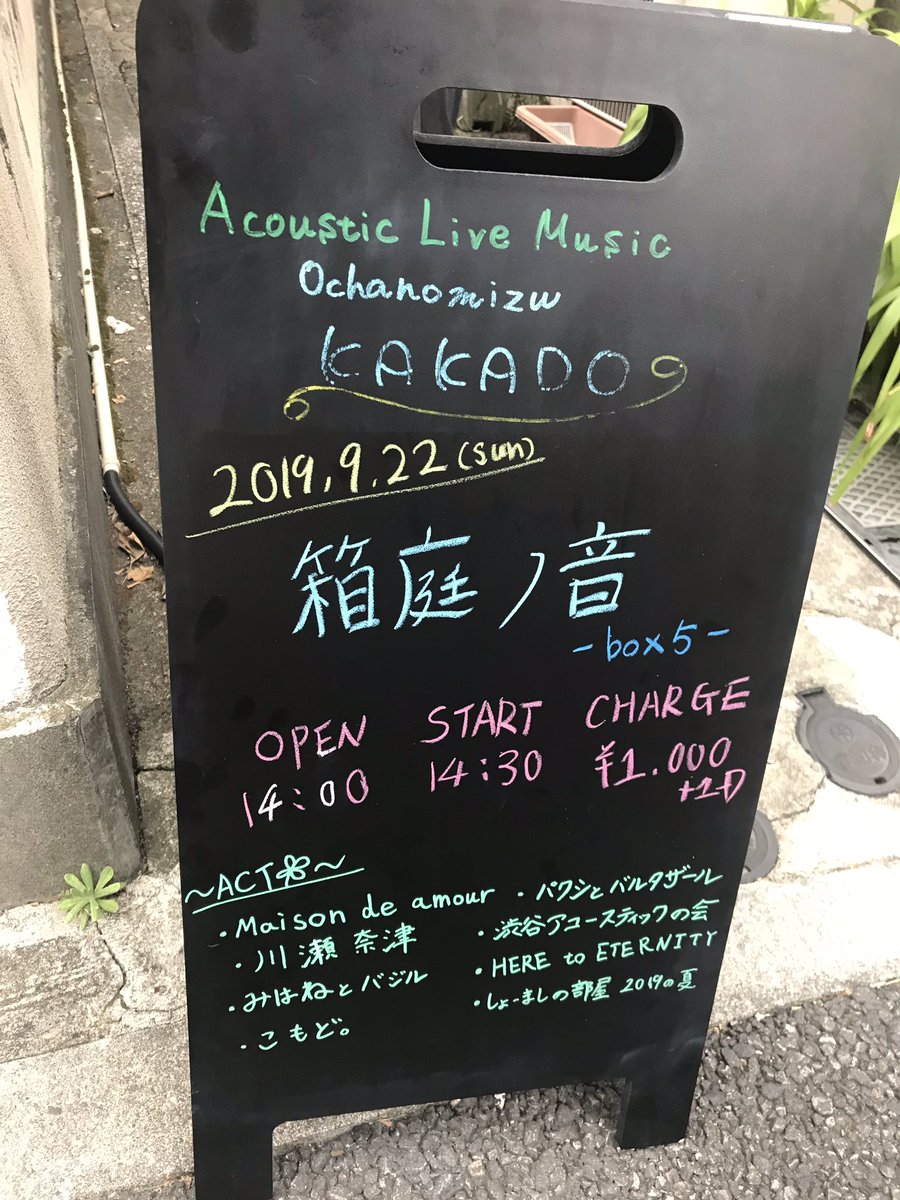 Acoustic Live Music
Ochanomizu
KAKADO
2019.9.22(sun)
箱庭ノ音
-box5-
OPEN START CHARGE
14:00 14:30 ¥1.000
+1D
～ACT～
・Maison de amour
・川瀬奈津
・みはねとバジル
・こもど。
・パクシとバルタザール
・渋谷アコースティックの会
・HERE to ETERNITY
・しょーましの部屋 2019の夏